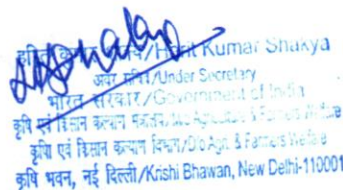 Kumar Shakya
अवर सचिव/Under Secretary
भारत सरकार/Government of India
कृषि एवं किसान कल्याण Agriculture & Farmers Welfare
कृषि एवं किसान कल्याण विभाग/D/o Agri. & Farmers Welfare
कृषि भवन, नई दिल्ली/Krishi Bhawan, New Delhi-110001